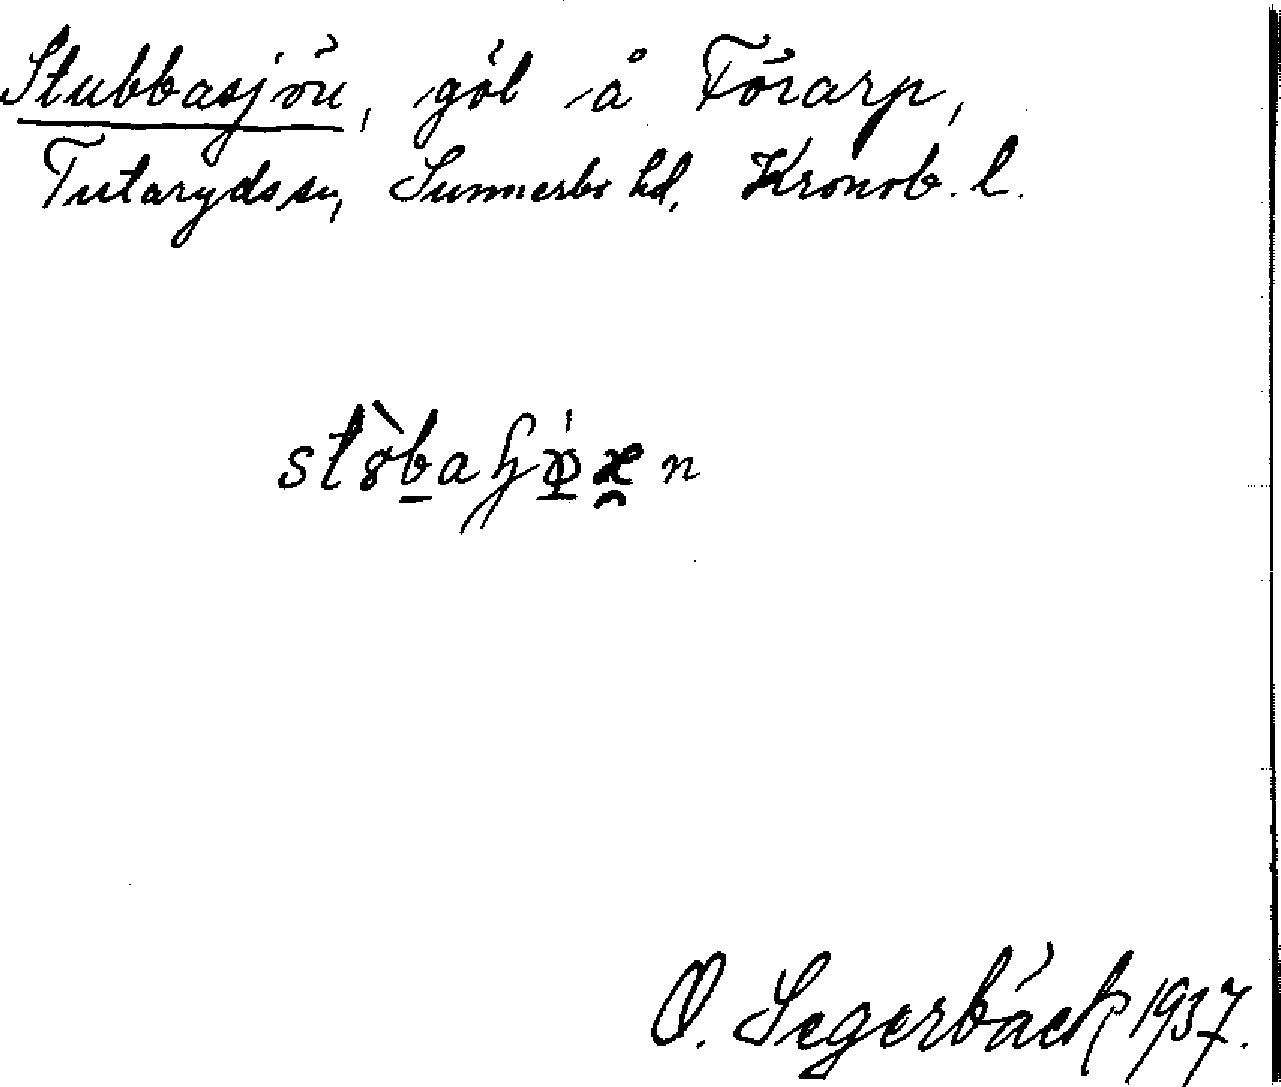 Stubbasjön, göl å Törarp,
Tutaryds sn, Sunnerbo hd, Kronob. l.
O. Segerbäck 1937.